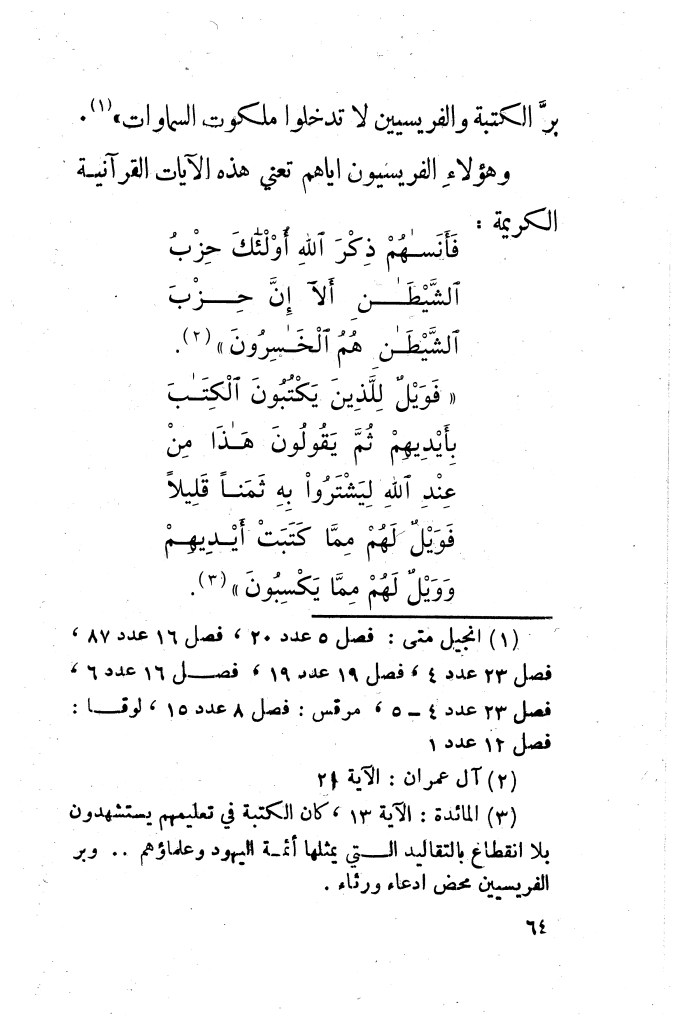 برَّ الكتبة والفريسيين لا تدخلوا ملكوت السماوات»(١).
وهؤلاءِ الفريسيون اياهم تعني هذه الآيات القرآنيـة
الكريمة :
فَأَنسَىٰهُمْ ذِكْرَ ٱللهِ أُوْلَٰٓئِكَ حِزْبُ
ٱلشَّيْطَـٰنِ أَلَآ إِنَّ حِـزْبَ
ٱلشَّيْطَـٰنِ هُمُ ٱلْخَـٰسِرُونَ»(٢).
« فَوَيْلٌ لِلَّذِينَ يَكْتُبُونَ ٱلْكِتَـٰبَ
بِأَيْدِيهِمْ ثُمَّ يَقُولُونَ هَـٰذَا مِنْ
عِنْدِ ٱللهِ لِيَشْتَرُواْ بِهِ ثَمَنـاً قَلِيلاً
فَوَيْلٌ لَهُمْ مِمَّا كَتَبَتْ أَيْـدِيهِـمْ
وَوَيْلٌ لَهُمْ مِمَّا يَكْسِبُونَ»(٣).
(١) انجيل متى : فصل ٥ عدد ٢٠ ، فصل ١٦ عدد ٨٧ ،
فصل ٢٣ عدد ٤ ، فصل ١٩ عدد ١٩ ، فصـل ١٦ عدد ٦ ،
فصل ٢٣ عدد ٤ ـ ٥ ، مرقس : فصل ٨ عدد ١٥ ، لوقـا :
فصل ١٢ عدد ١
(٢) آل عمران : الآية ٢١
(٣) المائدة : الآية ١٣ ، كان الكتبة في تعليمهم يستشهدون
بلا انقطاغ بالتقاليد التـي يمثلها أئمـة اليهود وعلماؤهم .. وبر
الفريسيين محض ادعاء ورثاء .
٦٤